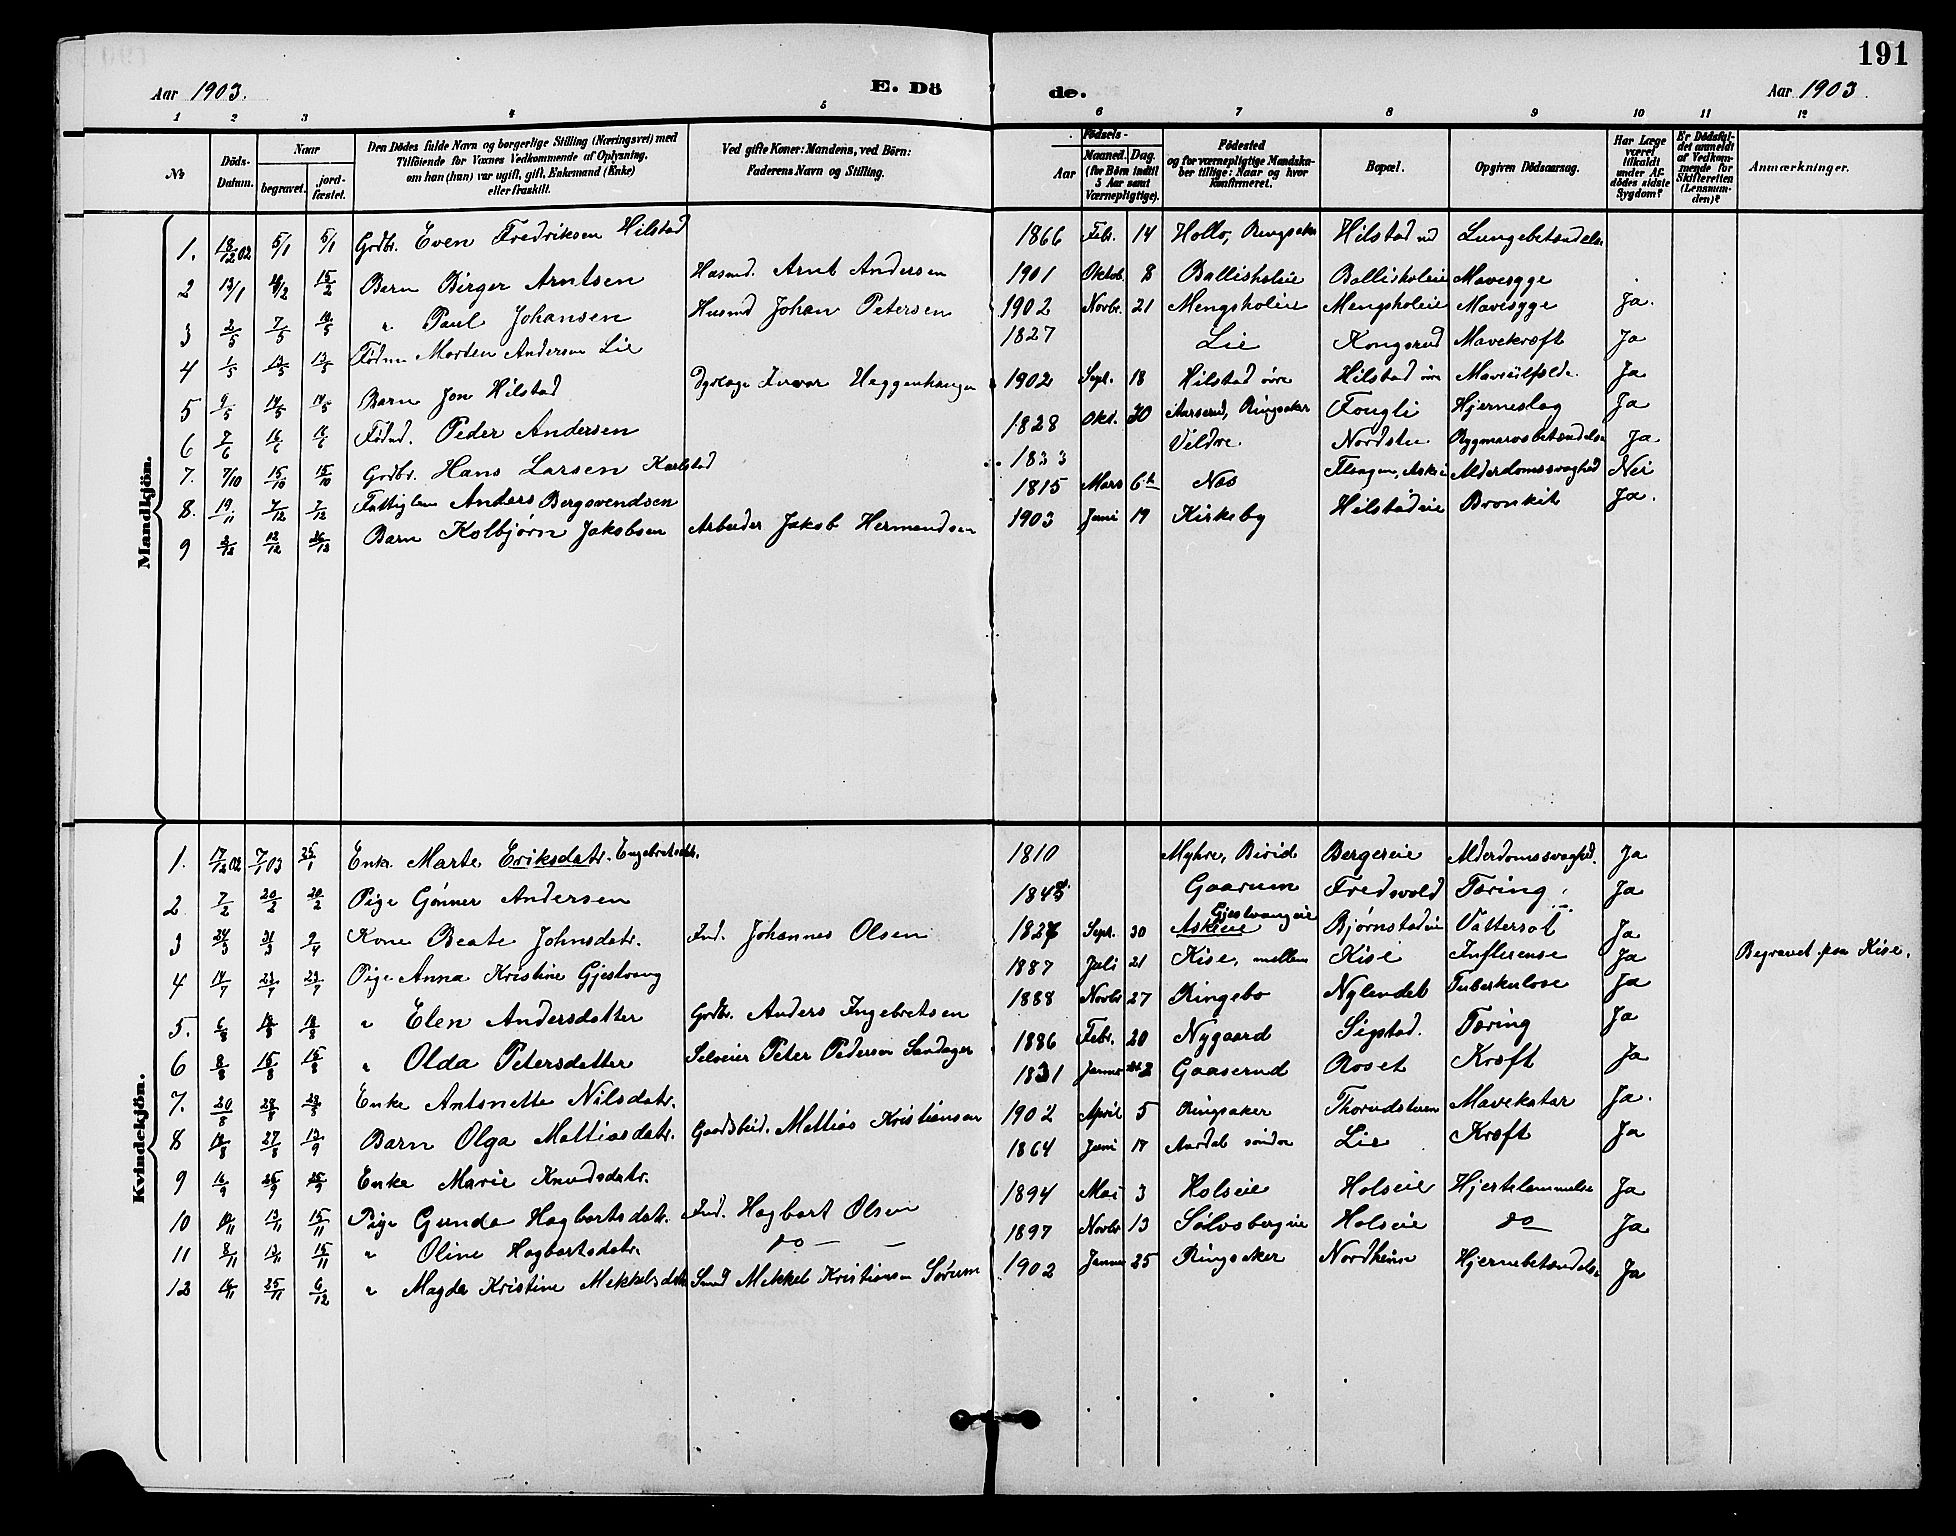 191
Aar 1903. E. Dö de. Aar 1903.
1 2 3 4 5 6 7 8 9 10 11 12
No Döds-Datum. Naar begravet. jord-fæstet. Den Dödes fulde Navn og borgerlige Stilling (Næringsvei) med Tilföiende for Voxnes Vedkommende af Oplysning, om han (hun) var ugift, gift, Enkemand (Enke) eller fraskilt. Ved gifte Koner: Mandens, ved Börn: Faderens Navn og Stilling. Födsels- Aar Maaned. Dag. (for Börn indtil 5 Aar samt Værnepligtige). Födested og for værnepligtige Mandskaber tillige: Naar og hvor konfirmeret. Bopæl. Opgiven Dödsaarsag. Har Læge været tilkaldt under Afdödes sidste Sygdom? Er Dödsfaldet anmeldt af Vedkommende for Skifteretten (Lensmanden)? Anmærkninger.
Mandkjön.
1. 18/12 02 5/1 5/1 Grdbr. Even Fredriksen Hilstad 1866 Febr. 14 Hollo, Ringsaker Hilstad Lungebetændelse
2 13/1 15/2 Barn Birger Arntsen Husmd. Arnt Andersen 1901 Oktob. 8 Balliskoleie Balliskoleie Mavesyge
3 2/5 7/5 10/5 " Paul Johansen Husmd Johan Petersen 1902 Novbr. 21 Mengskoleie Mengskoleie Mavesyge Ja.
4 1/5 13/5 13/5 Födm Morten Andersen Lie 1827 Lie Kongsrud Mavekræft Ja
5 9/5 14/5 14/5 Barn Jon Hilstad Dyrlæge Heggenhaugen 1902 Sept. 18 Hilstad övre Hilstad övre Ja
6 7/6 16/6 Födmd. Peder Andersen 1828 Okt. 30 Aasrud, Ringsaker Fougli Hjerneslag Ja
7. 7/10 15/10 15/10 Grdbr. Hans Larsen Karlstad 1833 Veldre. Nordstu Rygmarvsbetændelse Ja
8. 19/11 7/12 7/12 Fattiglem Anders Bergsvendsen 1815 Mars 6 Næs Alderdomssvaghed Nei
9 3/12 12/12 Barn Kolbjørn Jakobsen Arbeider Jakob Hermandsen 1903 Juni 19 Kirkeby Hilstadeie Bronkit Ja.
Kvindekjön.
1. 17/12 02 7/1 03 25/1 Enke Marte Eriksdatr. Engebretsdtr. 1810 Myhre, Birid Bergereie Alderdomssvaghed. Ja
2 7/2 20/2 20/2 Pige Gönner Andersen 1848 Gaarum Fredsvold Tæring Ja
3 24/3 31/3 9/4 Kone Beate Johnsdatr. Johannes Olsen 1827 Sept. 30 Askeie Gjestvangeie Bjørnstadeie Vattersot Ja
4 17/7 23/7 23/7 Pige Anna Kristine Gjestvang 1887 Juli 21 Kise, mellem Kise Influense Ja Begravet paa Kise.
5. 6/8 " Elen Andersdatter Grdbr. Anders Ingebretsen 1888 Novbr 27 Ringebo Nylendet Tuberkulose Ja
6 8/8 15/8 15/8 " Olda Petersdatter Selveier Peter Pedersen Sandager 1886 Febr. 20 Nygaard Sigstad. Tæring Ja
7. 20/8 28/8 Enke Antonette Nilsdatr. 1831 Gaaserud Roset Kræft Ja
8 27/8 13/9 Barn Olga Mattiasdatr. Mattias Kristiansen 1902 April 5 Ringsaker Thorudstuen Mavekatar Ja.
9 16/9 25/9 25/9 Enke Marie Knudsdatr. 1864 Juni 17 Aardal söndre Lie Kræft Ja
10 13/11 15/11 Pige Gunda Hagbartsdatr. Hagbart Olsen 1894 Mai 3 Holseie Holseie Hjertelammelse Ja
11 8/11 13/11 15/11 " Oline Hagbartsdatr. do — 1897 Novbr 13 Sølvsbergeie Holseie do — Ja
12 25/11 6/12 " Magda Kristine Mekkelsdatr Smed Mekkel Kristiansen Sörum 1902 Januar 25 Ringsaker Nordheim Hjernebetændelse Ja